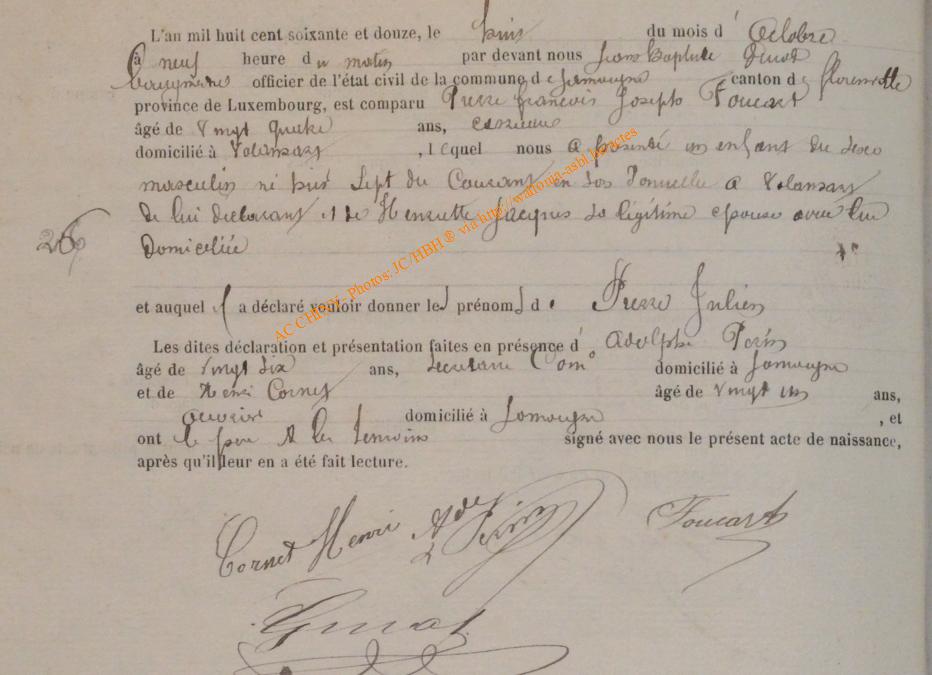 L'an mil huit cent soixante et douze, le huit du mois d' Octobre
à neuf heure du matin par devant nous Jean Baptiste
officier de l'état civil de la commune de Jamoigne canton de Florenville
province de Luxembourg, est comparu Pierre françois Joseph Foucart
âgé de Vingt quatre ans,
domicilié à Valansart, lequel nous a présenté un enfant du sexe
masculin né hier Sept du Courant en son domicile a Valansart
de lui déclarant et de Henriette Jacques sa légitime epouse avec lui
26
Domiciliée
et auquel il a déclaré vouloir donner les prénoms de Pierre Julien
Les dites déclaration et présentation faites en présence d' Adolphe Perin
âgé de Vingt six ans, Secretaire Comal domicilié à Jamoigne
et de Henri Cornet âgé de Vingt un ans,
ouvrier domicilié à Jamoigne, et
ont le pere et les temoins signé avec nous le présent acte de naissance,
après qu'il leur en a été fait lecture.
Cornet Henri Ade Perin Foucart
AC CHINY - Photos: JC/HBH ® via http://wallonia-asbl.be/actes